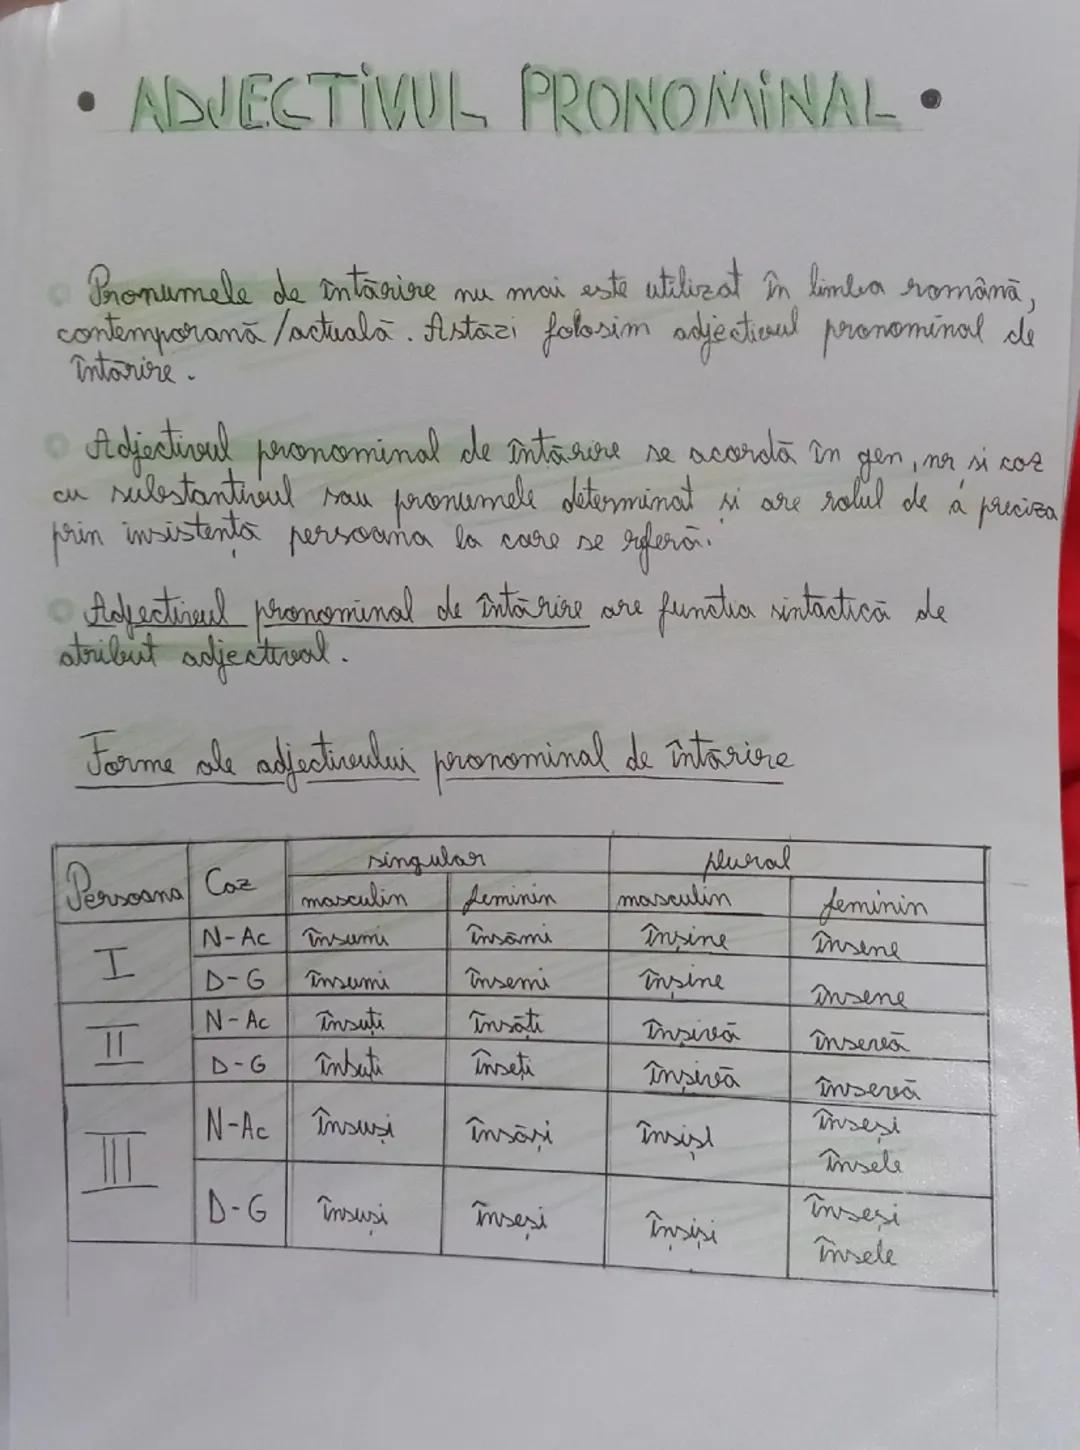 • ADJECTIVUL PRONOMINAL •
Pronumele de întărire nu mai este utilizat în limba română,
contemporană/actuală. Astăzi folosim adjectivul pronominal de
întărire.
Adjectivul pronominal de întărire se acordă în gen, nr și caz
cu substantivul sau pronumele determinat și are rolul de a preciza
prin insistență persoana la care se referă.
Adjectivul pronominal de întărire are funcția sintactică de
atribut adjectival.
Forme ale adjectivului pronominal de întărire
Persoana Caz singular plural
masculin feminin masculin feminin
I N-Ac însumi însămi înșine însene
D-G însumi însemi înșine însene
II N-Ac însuți însăți înșivă însevă
D-G însuți înseți înșivă însevă
III N-Ac însuși însăși înșiși înseși
însele
D-G însuși înseși înșiși înseși
însele